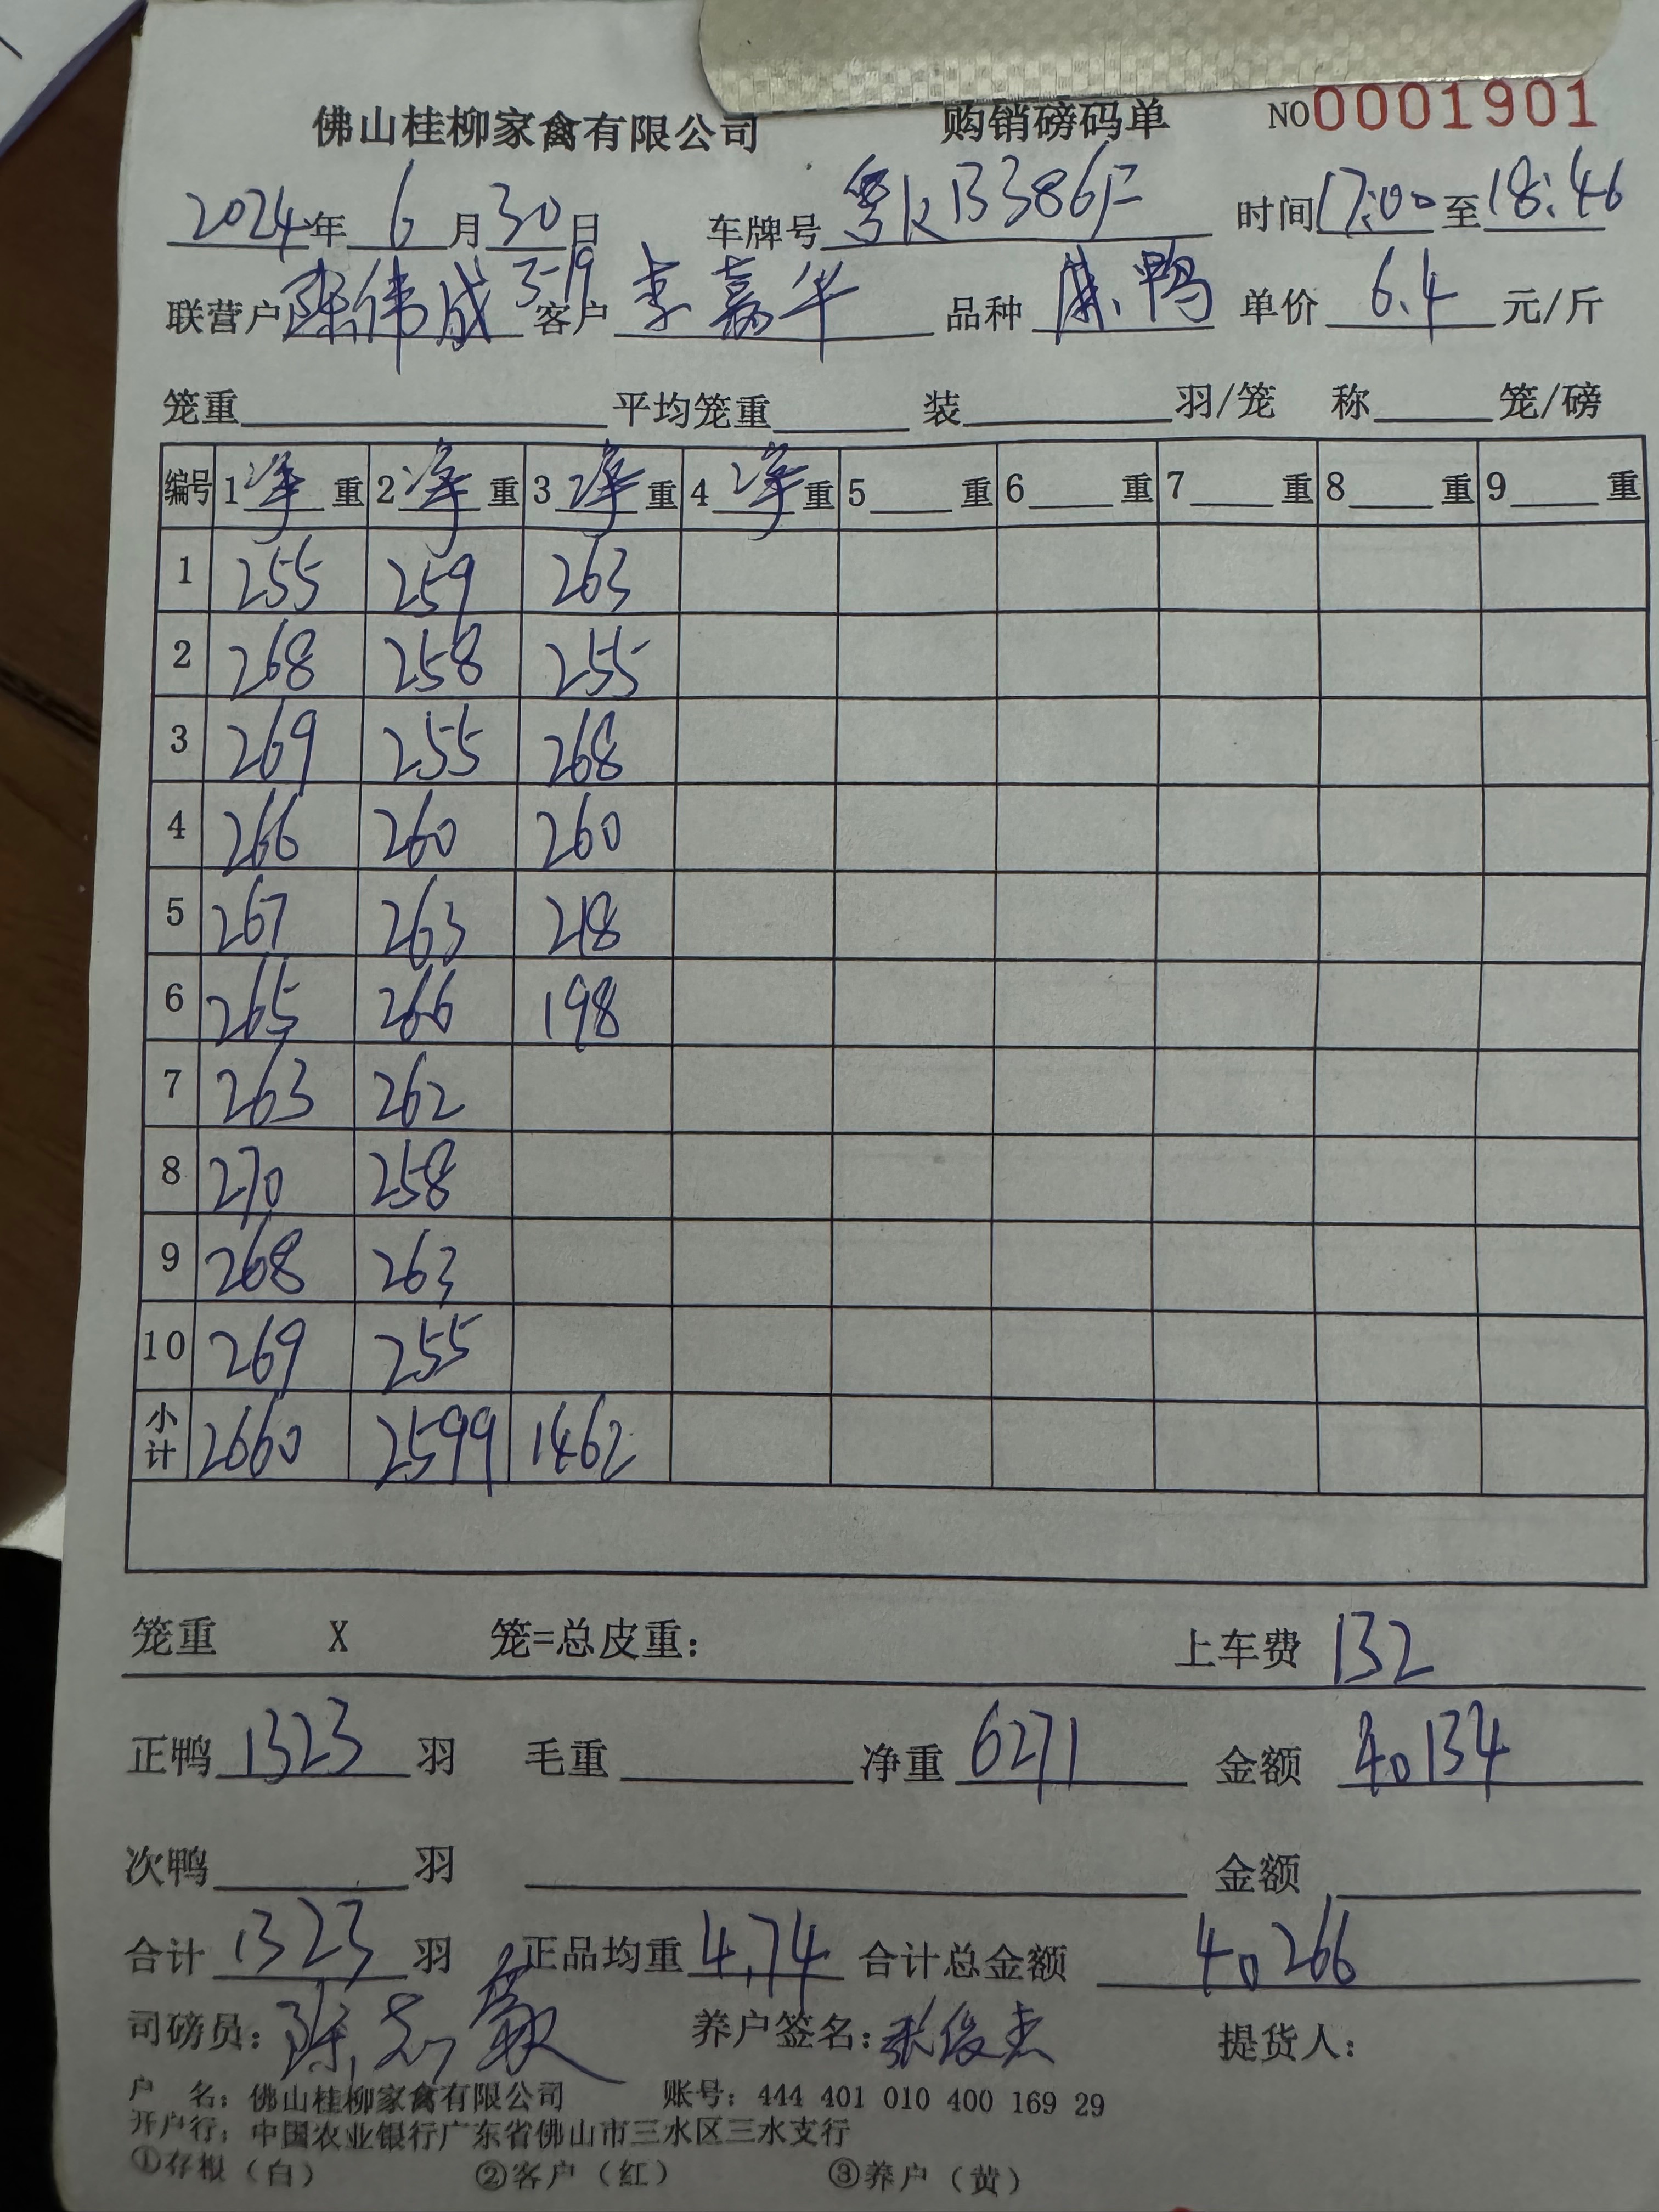 佛山桂柳家禽有限公司 购销磅码单 NO0001901
2024年 6 月 30 日 车牌号 粤KB386F 时间 17:00 至 18:46
联营户 陈伟成 3-19 客户 李嘉华 品种 麻鸭 单价 6.4 元/斤
笼重 平均笼重 装 羽/笼 称 笼/磅
编号 1 净 重 2 净 重 3 净 重 4 净 重 5 重 6 重 7 重 8 重 9 重
1 255 259 263
2 268 258 255
3 269 255 268
4 266 260 260
5 267 263 218
6 265 266 198
7 263 262
8 270 258
9 268 263
10 269 255
小计 2660 2599 1462
笼重 X 笼=总皮重: 上车费 132
正鸭 1323 羽 毛重 净重 6271 金额 40134
次鸭 羽 金额
合计 1323 羽 正品均重 4.74 合计总金额 40266
司磅员: 陈志敏 养户签名: 张俊杰 提货人:
户 名: 佛山桂柳家禽有限公司 账号: 444 401 010 400 169 29
开户行: 中国农业银行广东省佛山市三水区三水支行
①存根(白) ②客户(红) ③养户(黄)